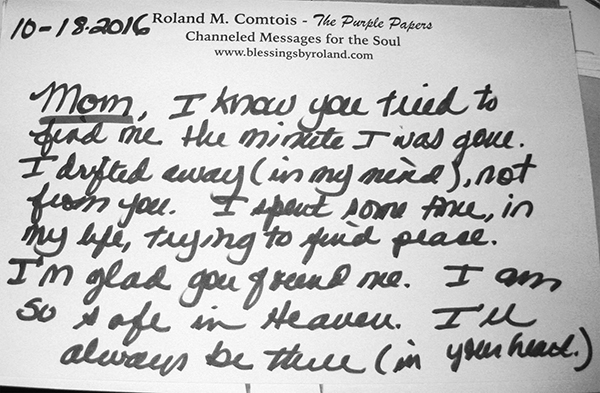 10-18-2016 Roland M. Comtois - The Purple Papers
Channeled Messages for the Soul
www.blessingsbyroland.com
Mom, I know you tried to
find me the minute I was gone.
I drifted away (in my mind), not
from you. I spent some time, in
my life, trying to find peace.
I'm glad you found me. I am
so safe in Heaven. I'll
always be there (in your heart.)